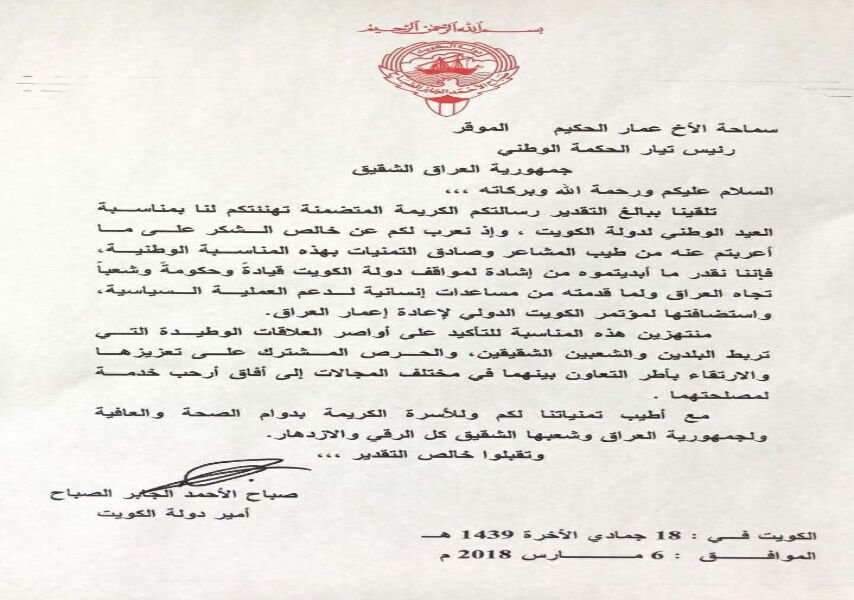 بسم الله الرحمن الرحيم
سماحة الأخ عمار الحكيم الموقر
رئيس تيار الحكمة الوطني
جمهورية العراق الشقيق
السلام عليكم ورحمة الله وبركاته ،،،
تلقينا ببالغ التقدير رسالتكم الكريمة المتضمنة تهنئتكم لنا بمناسبة
العيد الوطني لدولة الكويت ، وإذ نعرب لكم عن خالص الشكر على ما
أعربتم عنه من طيب المشاعر وصادق التمنيات بهذه المناسبة الوطنية،
فإننا نقدر ما أبديتموه من إشادة لمواقف دولة الكويت قيادةً وحكومةً وشعباً
تجاه العراق ولما قدمته من مساعدات إنسانية لدعم العملية السياسية،
واستضافتها لمؤتمر الكويت الدولي لإعادة إعمار العراق.
منتهزين هذه المناسبة للتأكيد على أواصر العلاقات الوطيدة التي
تربط البلدين والشعبين الشقيقين، والحرص المشترك على تعزيزها
والارتقاء بأطر التعاون بينهما في مختلف المجالات إلى أفاق أرحب خدمة
لمصلحتهما .
مع أطيب تمنياتنا لكم وللأسرة الكريمة بدوام الصحة والعافية
ولجمهورية العراق وشعبها الشقيق كل الرقي والازدهار.
وتقبلوا خالص التقدير ،،،
صباح الأحمد الجابر الصباح
أمير دولة الكويت
الكويت في : 18 جمادي الأخرة 1439 هـ
الموافق : 6 مارس 2018 م